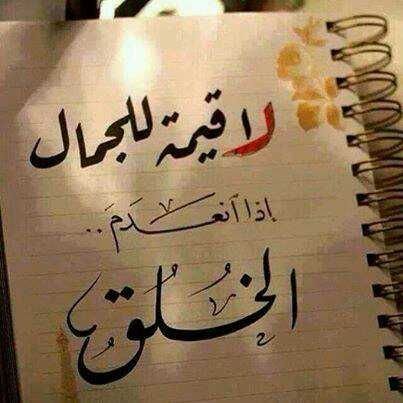 لا قيمة للجمال
إذا أنعَدَمَ..
الخُلُق